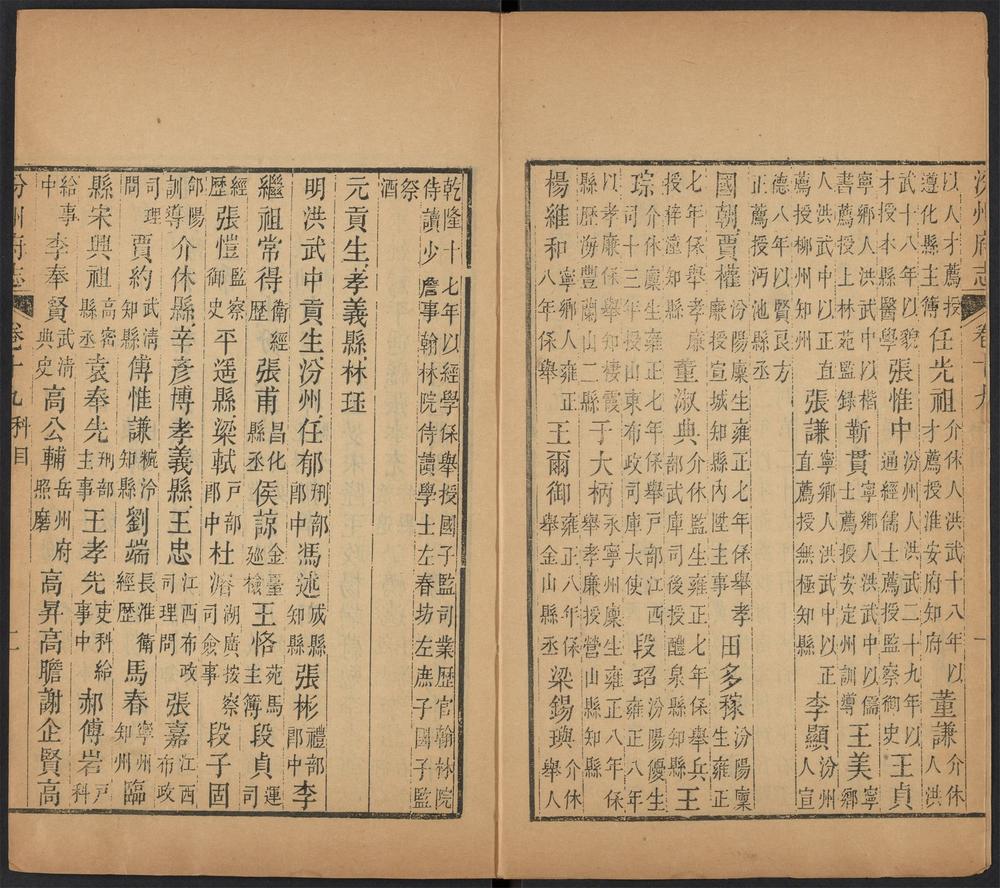 汾州府志 卷十九 一
以人才薦授遵化縣主簿任光祖介休人洪武十八年以才薦授淮安府知府董謙介休人洪
武十八年以貌才授本縣醫學張惟中汾州人洪武二十九年以通經儒士薦授監察御史王貞
寧鄉人洪武中以楷書薦授上林苑監録靳貫寧鄉人洪武中以儒士薦授安定州訓導王美寧鄉
人洪武中以正直薦授柳州知府張謙寧鄉人洪武中以正直薦授無極知縣李顯汾州人宣
德八年以賢良方正薦授沔池縣丞
國朝賈權汾陽廩生雍正七年保舉孝廉授宣城知縣内陞主事田多稼汾陽廩生雍正
七年保舉孝廉授梓潼知縣董淑典介休監生雍正七年保舉兵部武庫司後授醴泉縣知縣王
琮介休廩生雍正七年保舉戸部江西司十三年授山東布政司庫大使段玿汾陽優生雍正八年
以孝廉保舉知棲霞縣歷海豐蘭山二縣于大柄永寧州廩生雍正八年保舉孝廉授營山縣知縣
楊維和寧鄉人雍正八年保舉王爾御雍正八年保舉金山縣丞梁錫璵介休舉人
乾隆十七年以經學保舉授國子監司業歷官翰林院侍讀少詹事翰林院侍讀學士左春坊左庶子國子監
祭酒
元貢生孝義縣林珏
明洪武中貢生汾州任郁刑部郎中馮述成縣知縣張彬禮部郎中李
繼祖常得衛經歷張甫昌化縣丞侯諒金臺廵檢王恪苑馬主簿段貞運司
經歷張愷監察御史平遥縣梁軾戸部郎中杜濬湖廣按察司僉事段子固
郃陽訓導介休縣辛彦博孝義縣王忠江西布政司理問張嘉江西布政
司理問賈約武清知縣傅惟謙知縣劉端長淮衛經歷馬春寧州知州臨
縣宋興祖高密縣丞袁奉先刑部主事王孝先吏科給事中郝傅岩戸科
給事中李奉賢武清典史高公輔岳州府照磨高昇高膽謝企賢高
汾州府志 卷十九科目 二